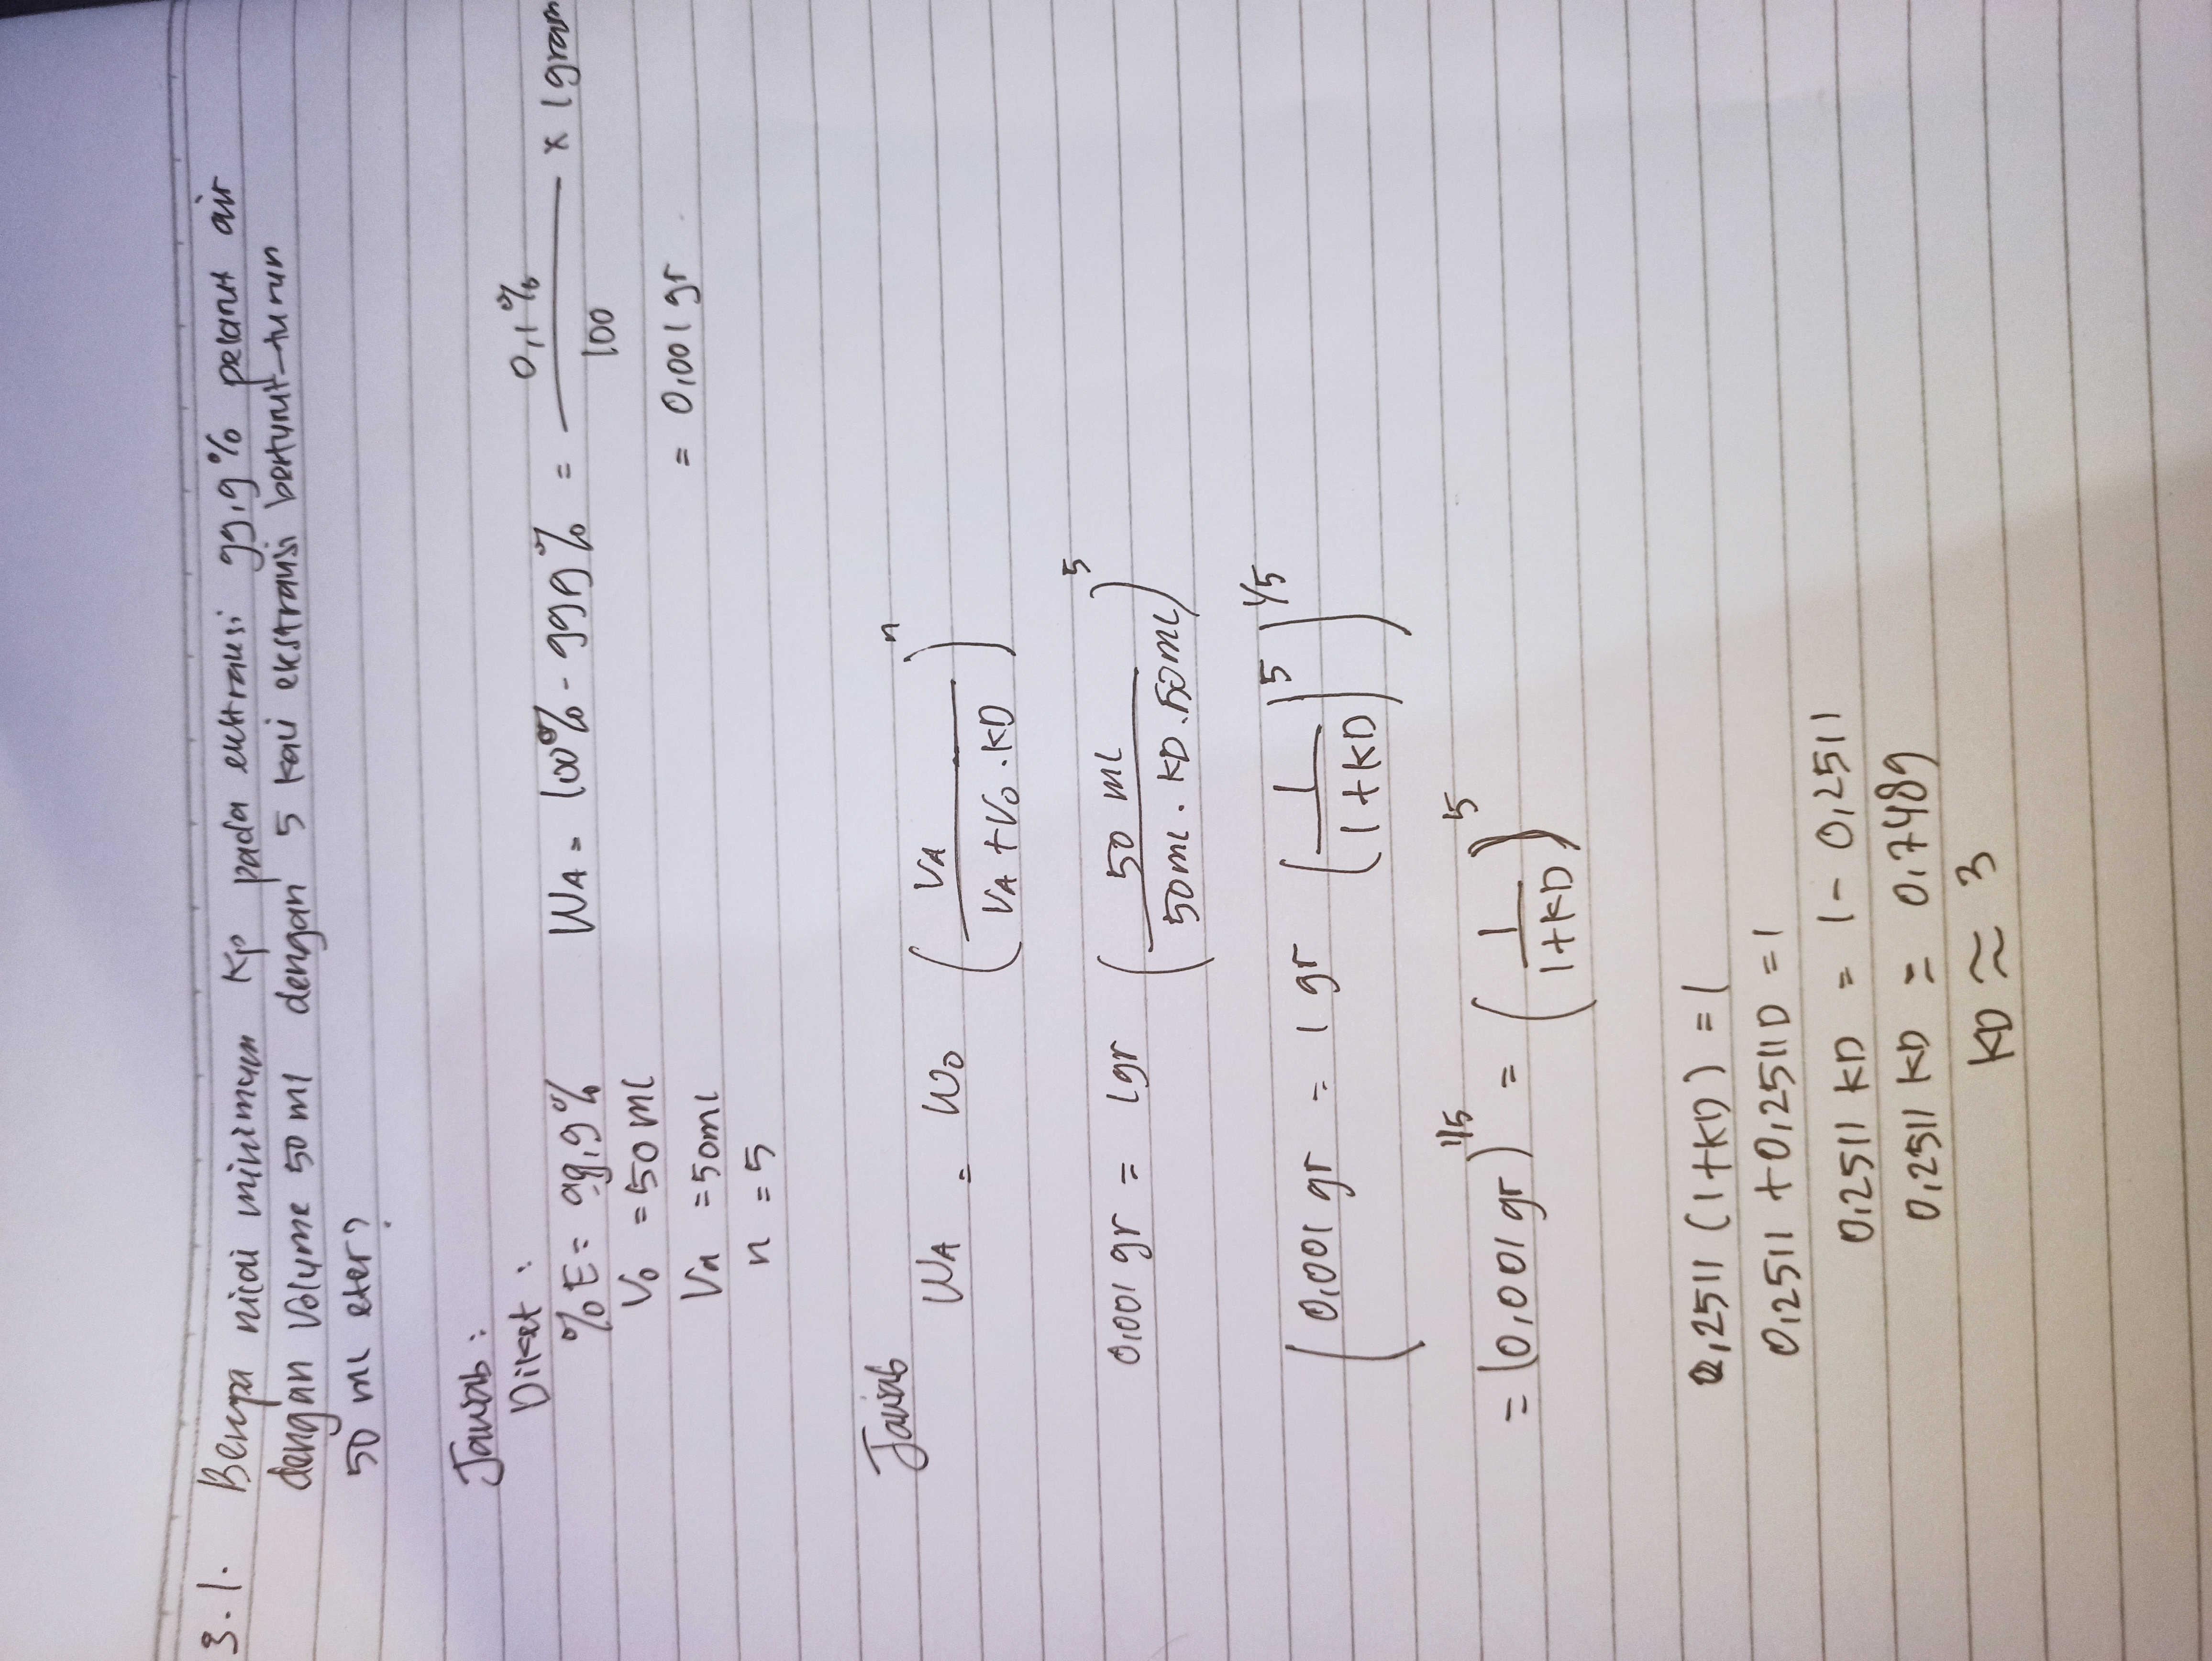 3.1. Berapa nilai minimum KD pada ekstraksi 99,9% pelarut air
dengan volume 50 ml dengan 5 kali ekstraksi berturut-turun
50 ml eter?
Jawab:
Diket:
%E = 99,9% WA = 100% - 99,9% = 0,1% / 100 x 1gram
Vo = 50 ml = 0,001 gr
VA = 50ml
n = 5
Jawab
WA = Wo (VA / VA + Vo . KD)^n
0,001 gr = 1gr (50 ml / 50ml . KD . 50ml)^5
(0,001 gr = 1 gr (1 / 1+KD)^5)^1/5
= (0,001 gr)^1/5 = (1 / 1+KD)^5
0,2511 (1+KD) = 1
0,2511 + 0,2511D = 1
0,2511 KD = 1 - 0,2511
0,2511 KD = 0,7489
KD ≈ 3